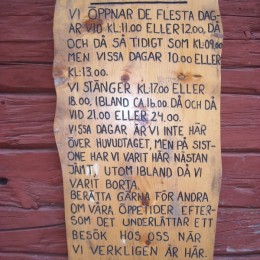 VI ÖPPNAR DE FLESTA DAG-
AR VID KL:11.00 ELLER 12.00, DÅ
OCH DÅ SÅ TIDIGT SOM KL:09.00
MEN VISSA DAGAR 10.00 ELLER
KL:13.00.
VI STÄNGER KL.17.00 ELLER
18.00, IBLAND CA 16.00. DÅ OCH DÅ
VID 21.00 ELLER 24.00.
VISSA DAGAR ÄR VI INTE HÄR
ÖVER HUVUDTAGET, MEN PÅ SIST-
ONE HAR VI VARIT HÄR NÄSTAN
JÄMT, UTOM IBLAND DÅ VI
VARIT BORTA.
BERÄTTA GÄRNA FÖR ANDRA
OM VÅRA ÖPPETIDER EFTER-
SOM DET UNDERLÄTTAR ETT
BESÖK HOS OSS NÄR
VI VERKLIGEN ÄR HÄR.